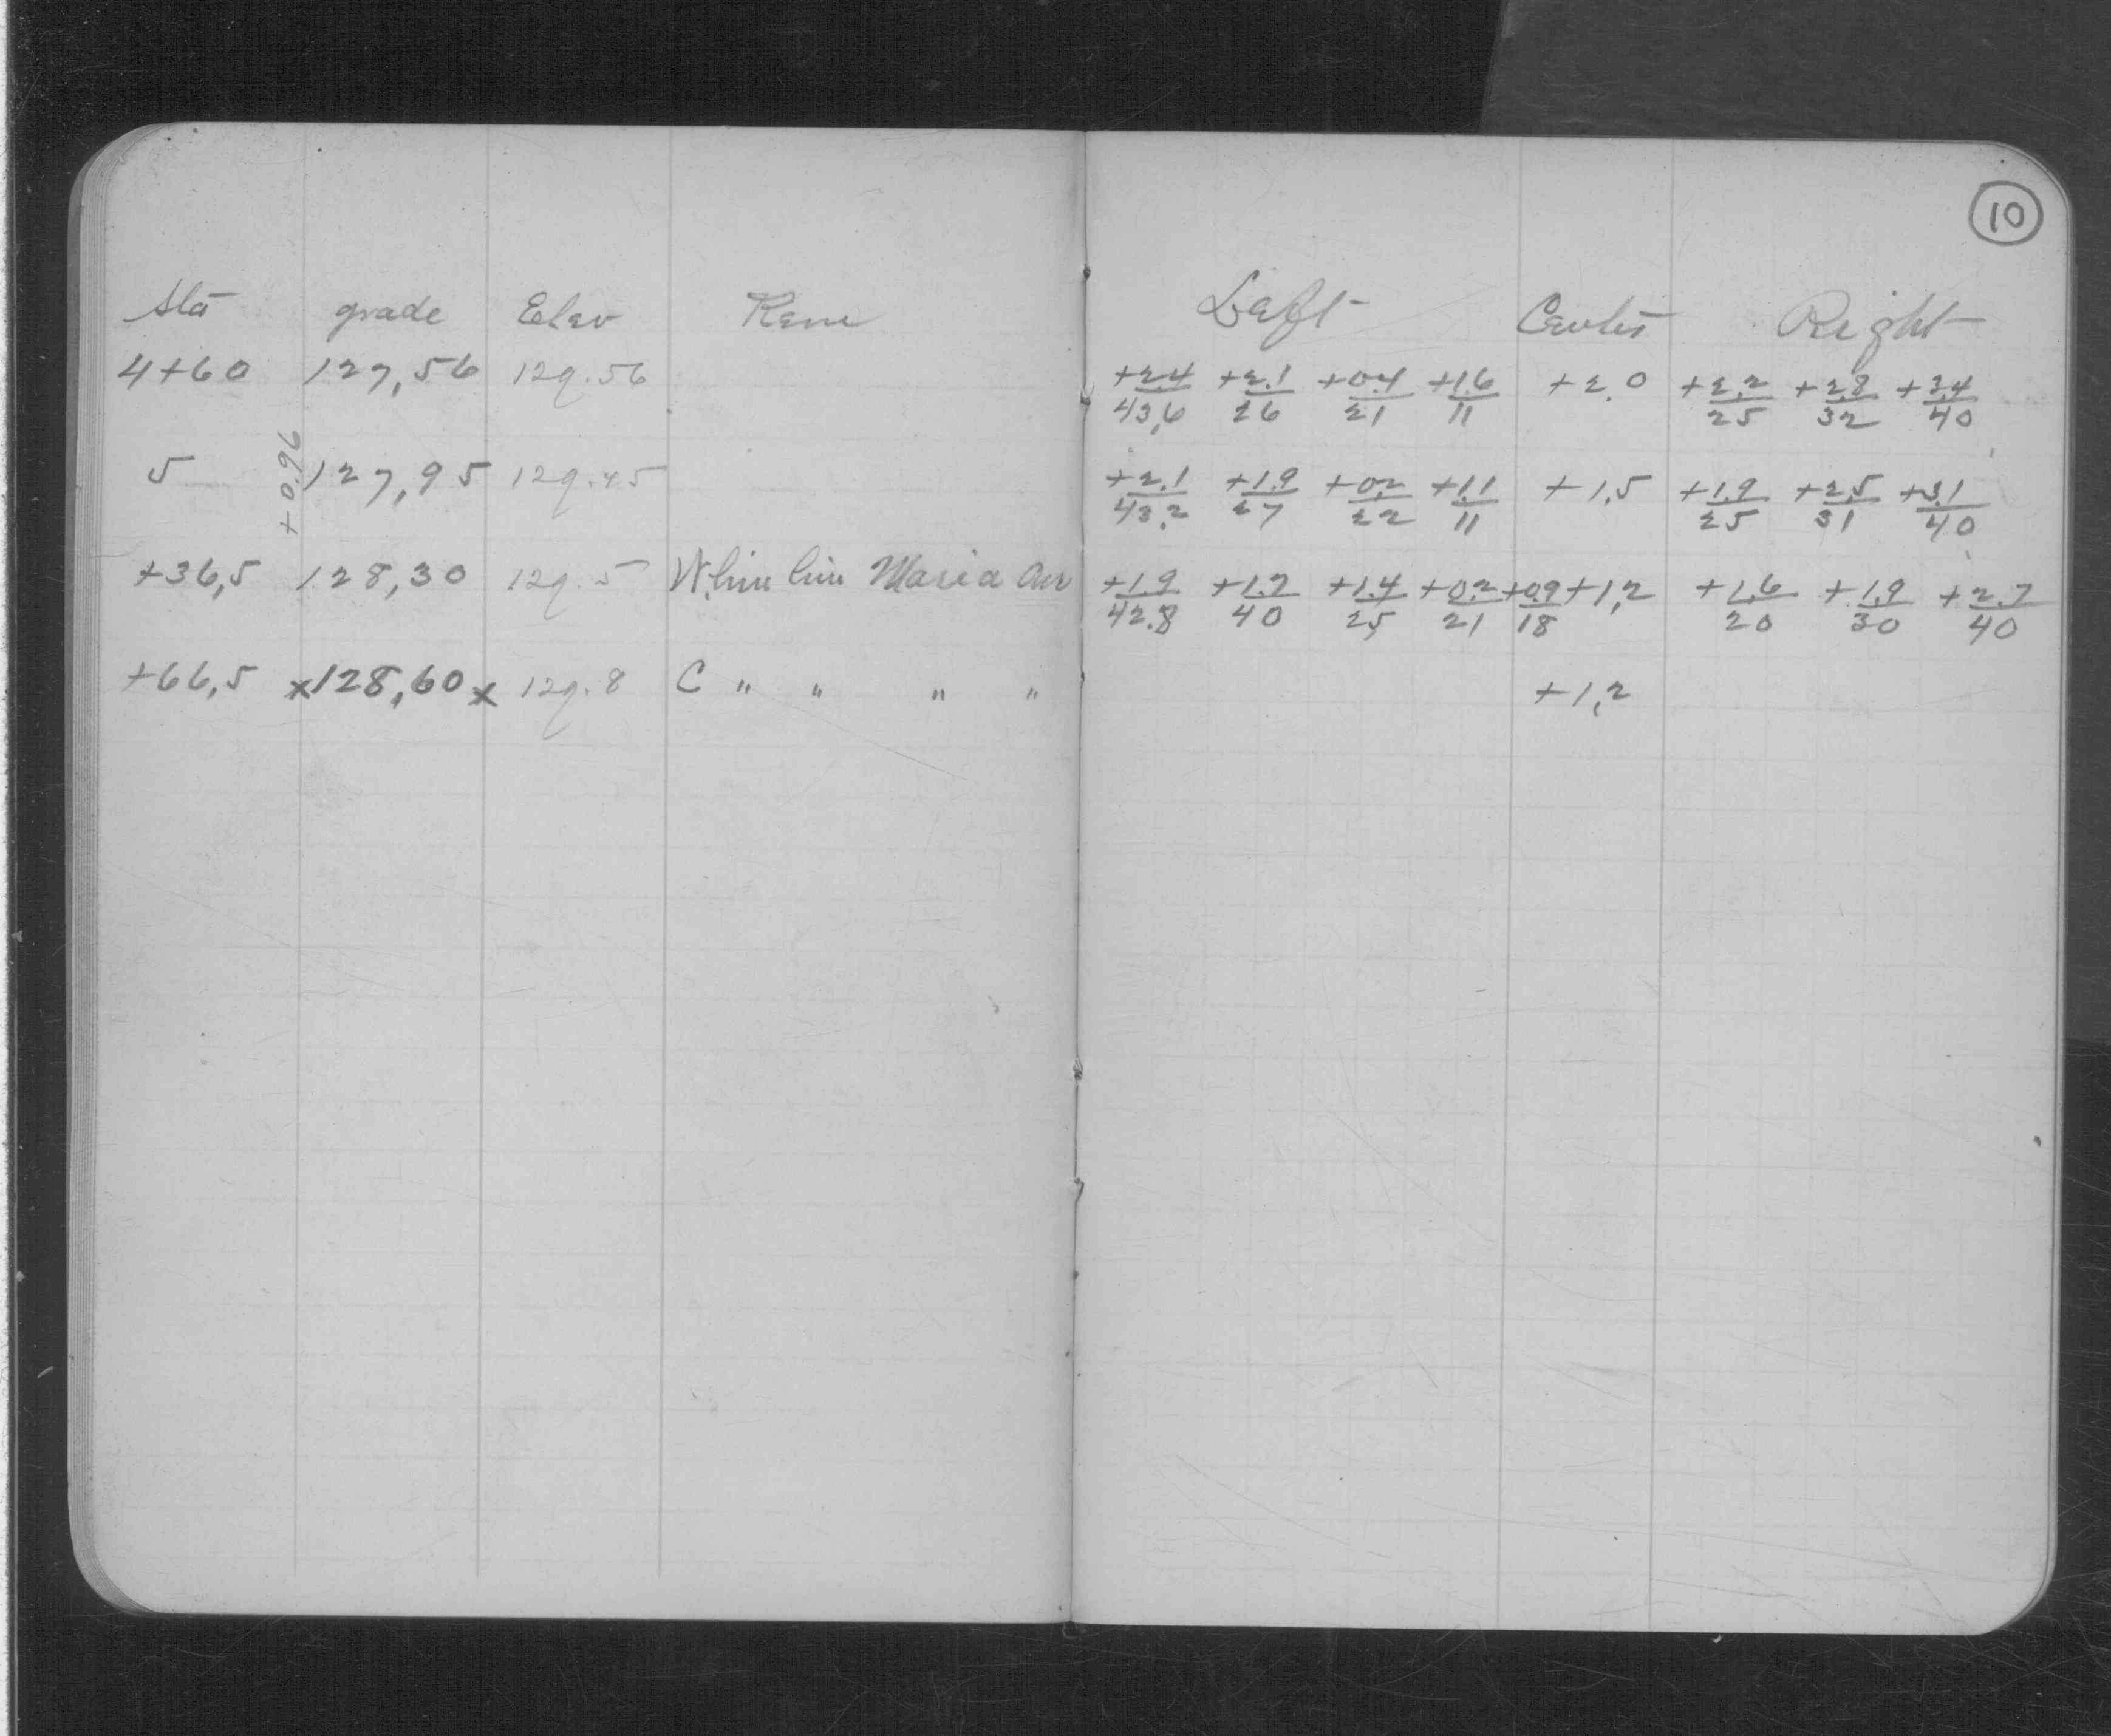 10
Sta grade Elev Rem Left Center Right
4+60 127,56 129.56 +2.4/43,6 +2.1/26 +0.4/21 +1.6/11 +2.0 +2.2/25 +2.8/32 +3.4/40
+0.96
5 127,95 129.45 +2.1/43.2 +1.9/27 +0.2/22 +1.1/11 +1.5 +1.9/25 +2.5/31 +3.1/40
+36,5 128,30 129.5 W. line line Maria Av +1.9/42.8 +1.7/40 +1.4/25 +0.2/21 +0.9/18 +1,2 +1.6/20 +1.9/30 +2.7/40
+66,5 x128,60x 129.8 C " " " " +1,2